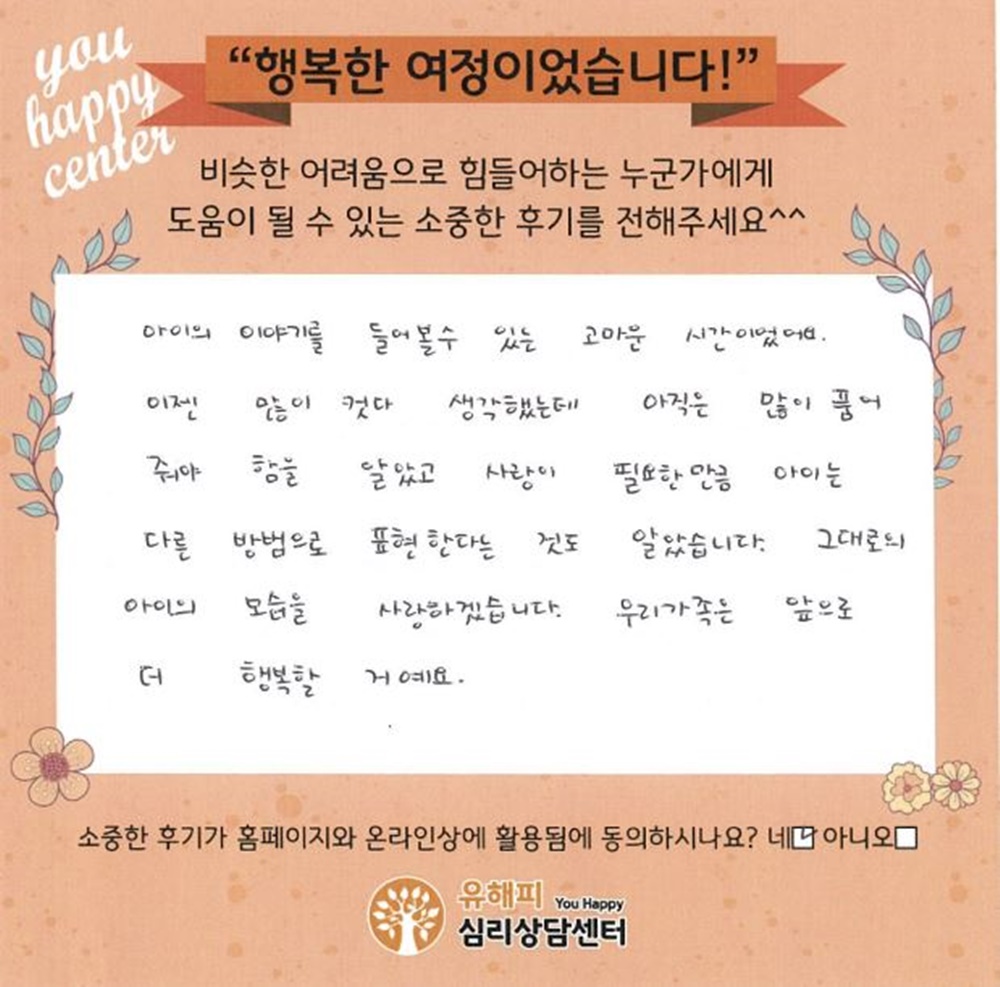 you
happy
center
“행복한 여정이었습니다!”
비슷한 어려움으로 힘들어하는 누군가에게
도움이 될 수 있는 소중한 후기를 전해주세요^^
아이의 이야기를 들어볼수 있는 고마운 시간이었어요.
이젠 많이 컷다 생각했는데 아직은 많이 품어
줘야 함을 알았고 사랑이 필요한 만큼 아이는
다른 방법으로 표현한다는 것도 알았습니다. 그대로의
아이의 모습을 사랑하겠습니다. 우리가족은 앞으로
더 행복할 거예요.
소중한 후기가 홈페이지와 온라인상에 활용됨에 동의하시나요? 네 아니오
유해피 You Happy
심리상담센터